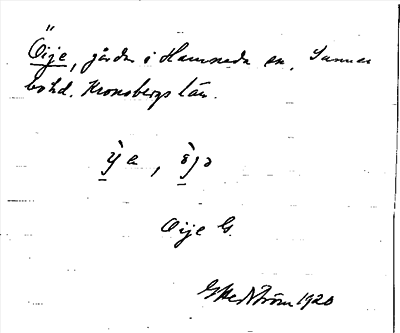 Öije, gårdar i Hamneda sn, Sunner
bo hd. Kronobergs län.
ỳa, ö̀jə
Öije G.
G Hedström 1920